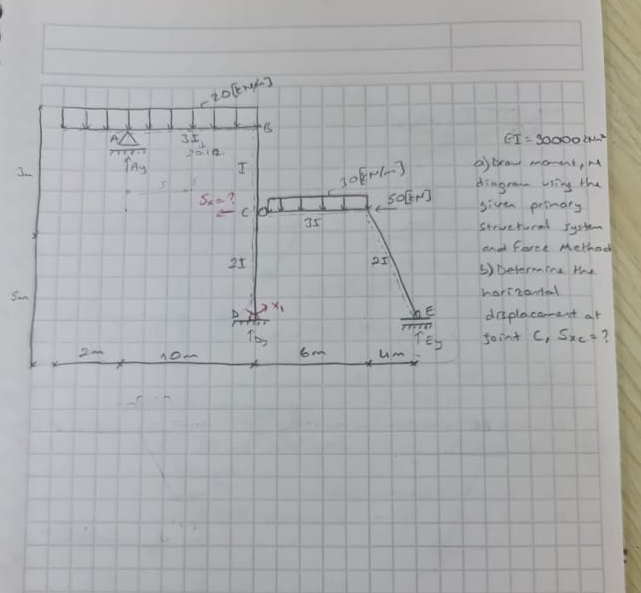 20[kN/m]
A
3I
B
Ay
I
3m
30[kN/m]
50[kN]
Sx=?
C
3I
2I
2I
5m
D
X1
E
Dy
Ey
2m
10m
6m
4m
EI = 30000 kNm²
a) Draw moment, M
diagram using the
given primary
structural system
and Force Method
b) Determine the
horizontal
displacement at
joint C, Sxc = ?